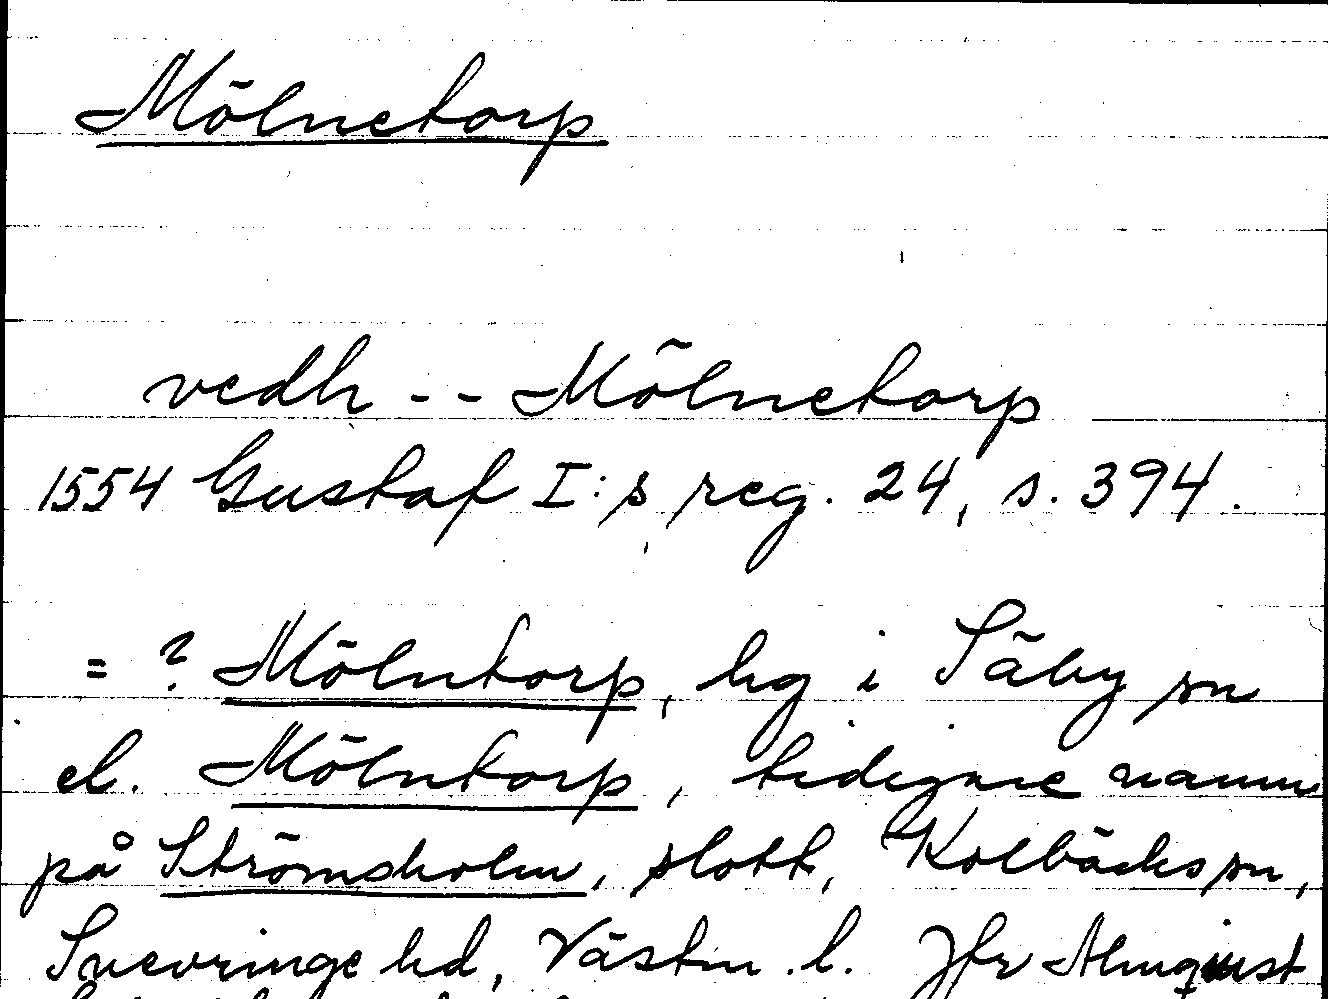 Mölnetorp
vedh -- Mölnetorp
1554 Gustaf I:s reg. 24, s. 394.
= ? Mölntorp, hg i Säby sn
el. Mölntorp, tidigare namn
på Strömsholm, slott, Kolbäcks sn,
Snevringe hd, Västm. l. Jfr Almquist